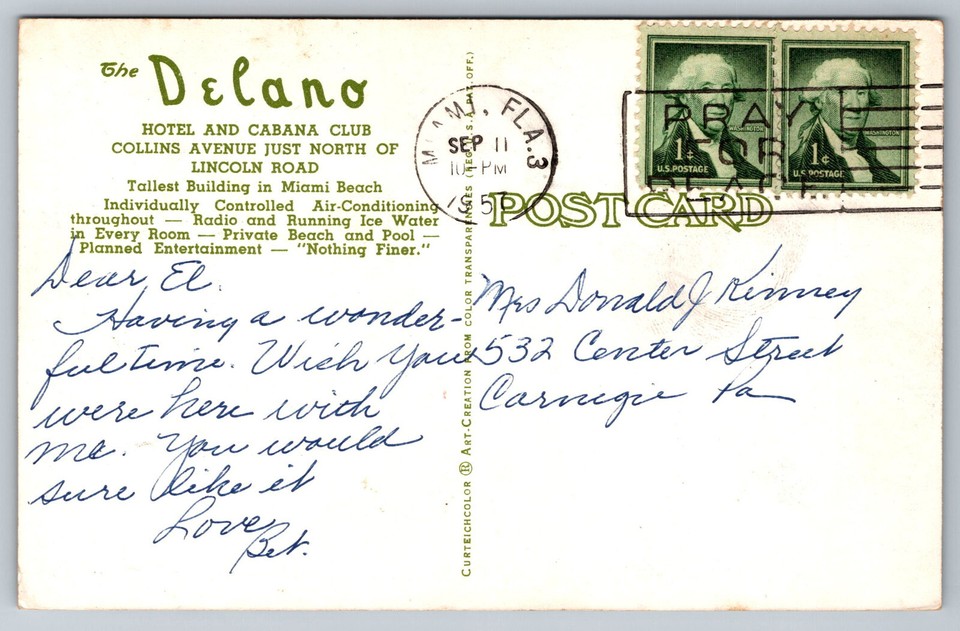 The Delano
HOTEL AND CABANA CLUB
COLLINS AVENUE JUST NORTH OF
LINCOLN ROAD
Tallest Building in Miami Beach
Individually Controlled Air-Conditioning
throughout — Radio and Running Ice Water
in Every Room — Private Beach and Pool —
Planned Entertainment — "Nothing Finer."
Dear El.
Having a wonder-
ful time. Wish you
were here with
me. You would
sure like it
Love
Bet.
CURTEICHCOLOR ® ART-CREATION FROM COLOR TRANSPARENCIES (REG. U.S.A. PAT. OFF.)
MIAMI, FLA. 3
SEP 11
10 PM
1957
PRAY
FOR
PEACE
WASHINGTON
1¢
U.S. POSTAGE
WASHINGTON
1¢
U.S. POSTAGE
POST CARD
Mrs Donald J Kinney
532 Center Street
Carnegie Pa